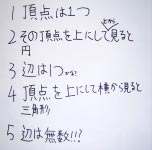 1 頂点は1つ
2 その頂点を上にして上から見ると
円
3 辺は1つかな?
4 頂点を上にして横から見ると
三角形
5 辺は無数!!?